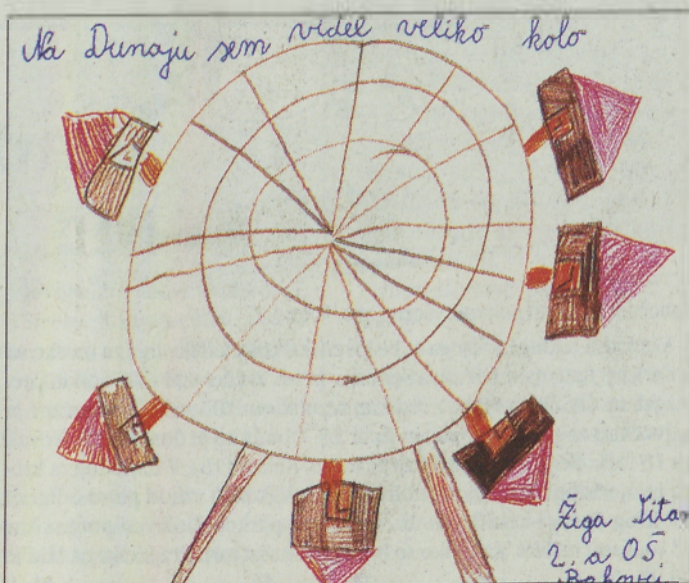 Na Dunaju sem videl veliko kolo
Žiga Titan
2. a OŠ
Bakovci